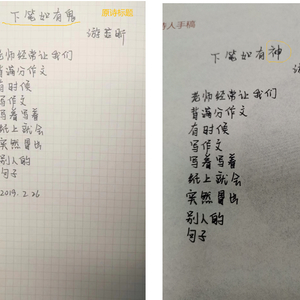 原诗标题
下笔如有鬼
游若昕
老师经常让我们
背满分作文
有时候
写作文
写着写着
纸上就会
突然冒出
别人的
句子
2019.2.26
诗人手稿
下笔如有神
游
老师经常让我们
背满分作文
有时候
写作文
写着写着
纸上就会
突然冒出
别人的
句子